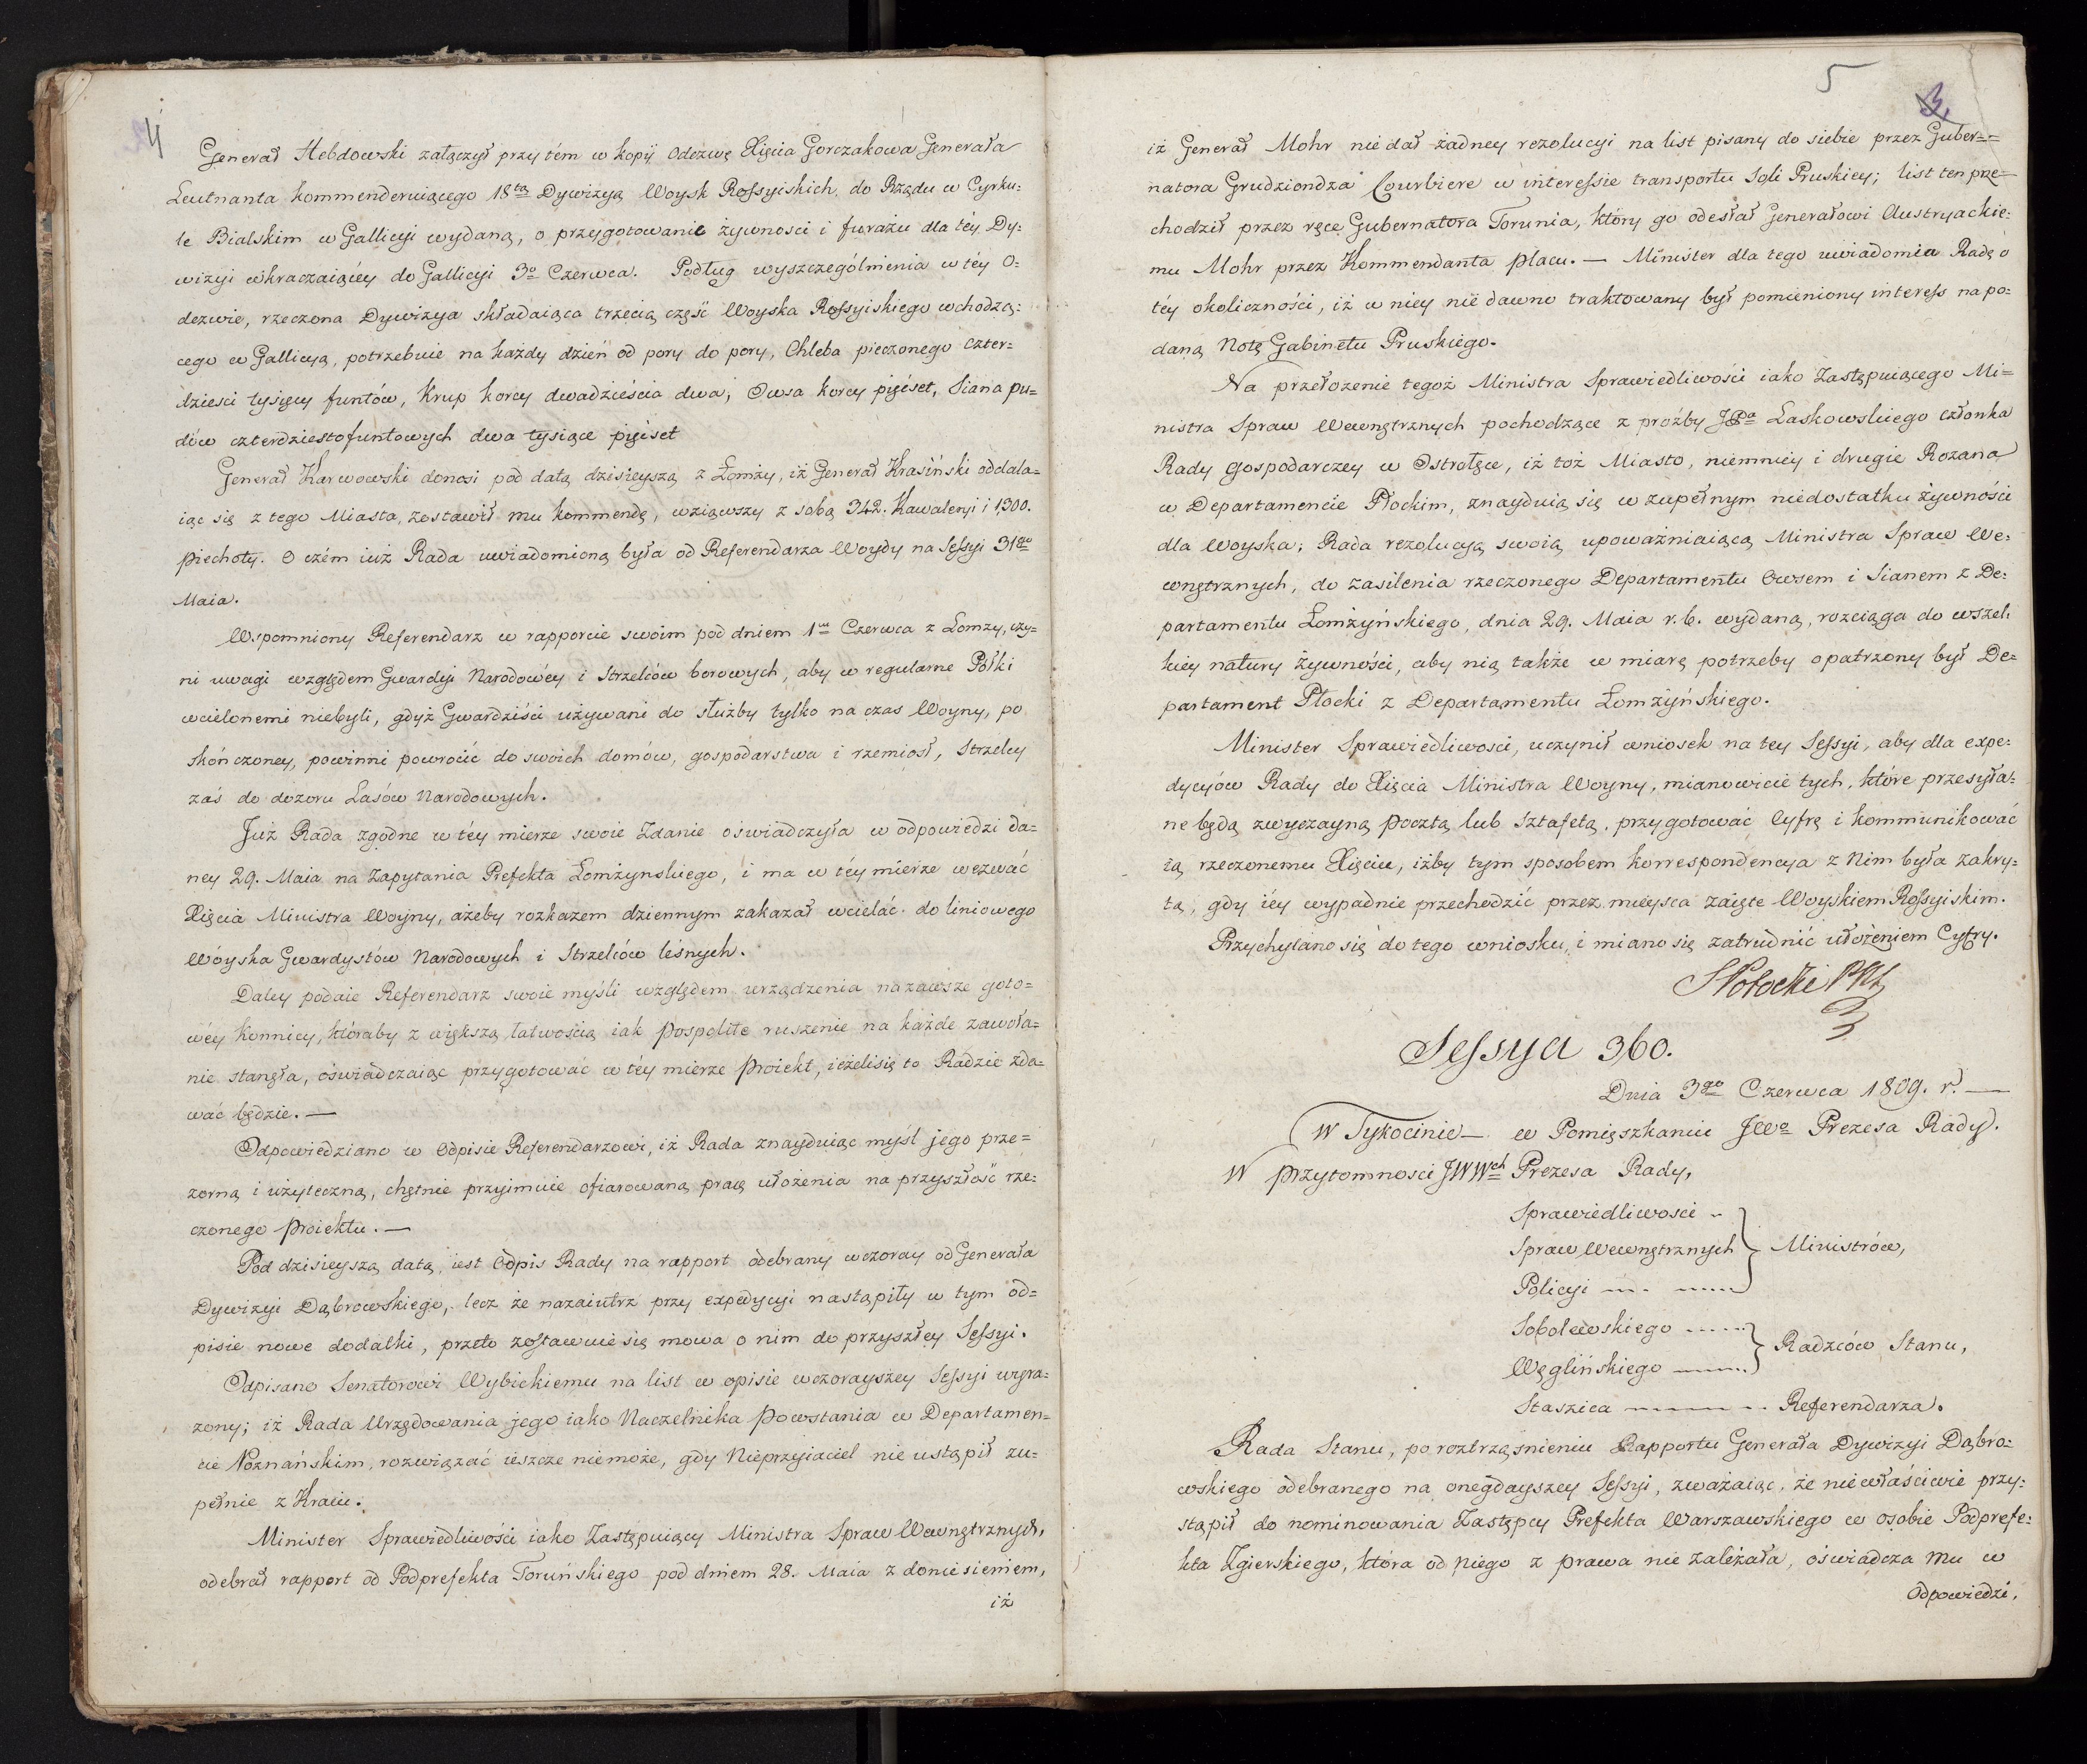 4
Generał Hebdowski załączył przy tém w kopij Odezwę Xięcia Gorczakowa Generała
Leutnanta kommenderuiącego 18tą Dywizyą Woysk Rossyiskich, do Rządu w Cyrku=
le Bialskim w Gallicyi wydaną, o przygotowanie żywnosci i furażu dla téy Dy=
wizyi wkraczaiącéy do Gallicyi 3o Czerwca. Podług wyszczególnienia w téy O=
dezwie, rzeczona Dywizya składaiąca trzecią część Woyska Rossyiskiego wchodzą=
cego w Gallicyą, potrzebuie na każdy dzień od pory do pory, Chleba pieczonego czter=
dziesci tysięcy funtów, Krup korcy dwadzieścia dwa; Owsa korcy pięćset, Siana pu=
dów czterdziestofuntowych dwa tysiące pięćset
Generał Karwowski donosi pod datą dzisieyszą z Łomży, iż Generał Krasiński oddala=
iąc się z tego Miasta, zostawił mu kommendę, wziąwszy z sobą 342. Kawaleryi i 1,300.
piechoty. O czém iuż Rada uwiadomioną była od Referendarza Woydy na Sessyi 31go
Maia.
Wspomniony Referendarz w rapporcie swoim pod dniem 1m Czerwca z Łomży, czy=
ni uwagi względem Gwardyi Narodowéy i Strzelców borowych, aby w regularne Półki
wcielonemi niebyli, gdyż Gwardziści używani do służby tylko na czas Woyny, po
skończoney, powinni powrócić do swoich domów, gospodarstwa i rzemiosł, Strzelcy
zaś do dozoru Lasów Narodowych.
Już Rada zgodne w téy mierze swoie Zdanie oświadczyła w odpowiedzi da=
ney 29. Maia na Zapytania Prefekta Łomżynskiego, i ma w téy mierze wezwać
Xięcia Ministra Woyny, ażeby rozkazem dziennym zakazał wcielać do liniowego
Wóyska Gwardystów Narodowych i Strzelców leśnych.
Daley podaie Referendarz swoie myśli względem urządzenia nazawsze goto=
wéy Konnicy, któraby z większą łatwością iak Pospolite ruszenie na każde zawoła=
nie stanęła, oświadczaiąc przygotować w téy mierze Proiekt, ieżeli się to Radzie zda=
wać będzie. —
Odpowiedziano w Odpisie Referendarzowi, iż Rada znayduiąc myśl jego prze=
zorną i użyteczną, chętnie przyimuie ofiarowaną pracę ułożenia na przyszłość rze=
czonego Proiektu. —
Pod dzisieyszą datą, iest Odpis Rady na rapport odebrany wczoray od Generała
Dywizyi Dąbrowskiego, lecz że nazaiutrz przy expedycyi nastąpiły w tym od=
pisie nowe dodatki, przeto zostawuie się mowa o nim do przyszłey Sessyi.
Odpisano Senatorowi Wybickiemu na list w opisie wczorayszey Sessyi wyra=
żony; iż Rada Urzędowania jego iako Naczelnika Powstania w Departamen=
cie Poznańskim, rozwiązać ieszcze niemoże, gdy Nieprzyiaciel nie ustąpił zu=
pełnie z Kraiu.
Minister Sprawiedliwości iako Zastępuiący Ministra Spraw Wewnętrznych,
odebrał rapport od Podprefekta Toruńskiego pod dniem 28. Maia z doniesieniem,
iż
5
iż Generał Mohr nie dał żadney rezolucyi na list pisany do siebie przez Guber==
natora Grudziondza Courbiere w interessie transportu Soli Pruskiey; list ten prze=
chodził przez ręce Gubernatora Torunia, który go odesłał Generałowi Austryackie=
mu Mohr przez Kommendanta placu. — Minister dla tego uwiadomia Radę o
téy okoliczności, iż w niey nie dawno traktowany był pomieniony interess na po=
daną Notę Gabinetu Pruskiego.
Na przełożenie tegoż Ministra Sprawiedliwości iako Zastępuiącego Mi=
nistra Spraw Wewnętrznych pochodzące z prożby JPa Laskowskiego członka
Rady gospodarczey w Ostrołęce, iż toż Miasto, niemniéy i drugie Rozana
w Departamencie Płockim, znayduią się w zupełnym niedostatku żywności
dla Woyska; Rada rezolucyą swoią upoważniaiącą Ministra Spraw We=
wnętrznych, do zasilenia rzeczonego Departamentu Owsem i Sianem z De=
partamentu Łomżyńskiego, dnia 29. Maia r. b. wydaną, rozciąga do wszel=
kiey natury żywności, aby nią także w miarę potrzeby opatrzony był De=
partament Płocki z Departamentu Łomżyńskiego.
Minister Sprawiedliwosci, uczynił wniosek na tey Sessyi, aby dla expe=
dycyów Rady do Xięcia Ministra Woyny, mianowicie tych, które przesyła=
ne będą zwyczayną pocztą lub Sztafetą, przygotować Cyfrę i kommunikować
ią rzeczonemu Xięciu, iżby tym sposobem korrespondencya z Nim była zakry=
tą, gdy iéy wypadnie przechodzić przez mieysca zaięte Woyskiem Rossyiskim.
Przychylano się do tego wniosku, i miano się zatrudnić ułożeniem Cyfry.
SPotocki
Sessya 360.
Dnia 3go Czerwca 1809. r. —
W Tykocinie — w Pomięszkaniu JWo Prezesa Rady.
W przytomnosci JWWch Prezesa Rady,
Sprawiedliwosci ..
Spraw Wewnętrznych } Ministrów,
Policyi .... ......
Sobolewskiego ......
Węglińskiego ........ } Radzców Stanu,
Staszica .......... Referendarza.
Rada Stanu, po roztrząsnieniu Rapportu Generała Dywizyi Dąbro=
wskiego odebranego na onegdayszey Sessyi, zważaiąc, że niewłaściwie przy=
stąpił do nominowania Zastępcy Prefekta Warszawskiego w osobie Podprefe=
kta Zgierskiego, która od niego z prawa nie zależała, oświadcza mu w
Odpowiedzi,